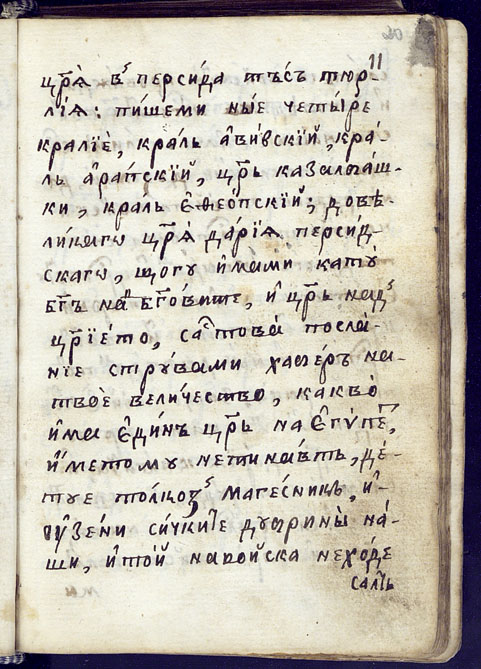 11
цр҃ѧ̀ в̾ персі́да тъ́съ тꙋр-
лі́ѧ: пи́шеми ные четы́ре
краліѐ, кра́ль а҆ви́вскїй, кра́-
ль а҆ра́пскїй, цр҃ь казалба́ш-
ки, краль е҆ѳео́пскїй; до вѣ-
ли́кагѡ цр҃ѧ̀ да́рїѧ перси́д-
скагѡ, щогу и҆́мами катѡ̀
бг҃ъ на бг҃ѡвите, и҆ цр҃ь над̾
цр҃їе́то, са́с това̀ посла́-
нїе стрꙋ́вами хаѳеръ на-
твоѐ вели́чество, какво̀
и҆́ма е҆ди́нъ цр҃ь на е҆гѵ́пе҃т,
и҆́метому нетина́въ, де́-
туе толкоз̾ маге́сникь, и҆-
ꙋзе́ни си́чкиⷮе дꙋѳрины̀ на́-
ши, и҆ то́й на во́йска нехо́де
салⷮь